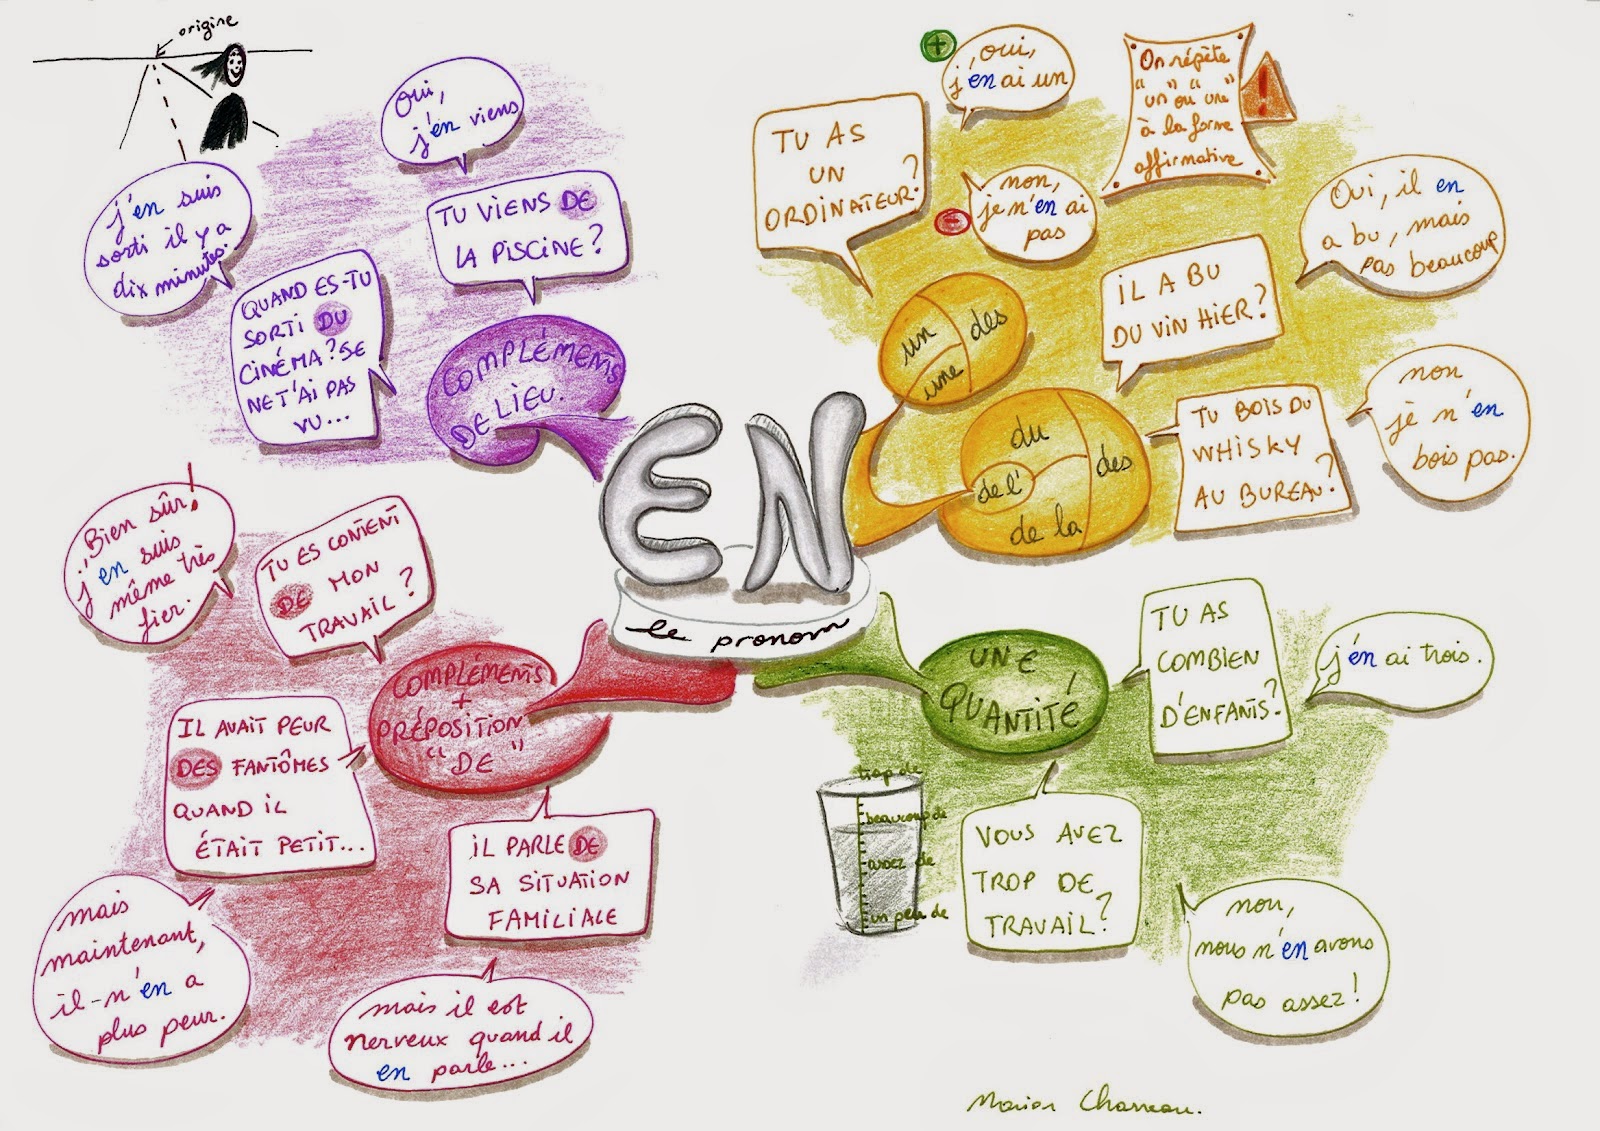 EN
le pronom
origine
Oui,
j'en viens
TU VIENS DE
LA PISCINE?
j'en suis
sorti il y a
dix minutes.
QUAND ES-TU
SORTI DU
CINÉMA? JE
NE T'AI PAS
VU...
COMPLÉMENTS
DE LIEU.
oui,
j'en ai un
On répète
"un" ou "une"
à la forme
affirmative
!
TU AS
UN
ORDINATEUR?
non,
je n'en ai
pas
Oui, il en
a bu, mais
pas beaucoup
IL A BU
DU VIN HIER?
un
une
des
du
des
de l'
de la
TU BOIS DU
WHISKY
AU BUREAU?
non
je n'en
bois pas.
Bien sûr!
j'en suis
même très
fier.
TU ES CONTENT
DE MON
TRAVAIL?
COMPLÉMENTS
+
PRÉPOSITION
"DE"
IL AVAIT PEUR
DES FANTÔMES
QUAND IL
ÉTAIT PETIT...
mais
maintenant,
il n'en a
plus peur.
IL PARLE DE
SA SITUATION
FAMILIALE
mais il est
nerveux quand il
en parle...
UNE
QUANTITÉ
TU AS
COMBIEN
D'ENFANTS?
j'en ai trois.
trop de
beaucoup de
assez de
un peu de
VOUS AVEZ
TROP DE
TRAVAIL?
non,
nous n'en avons
pas assez!